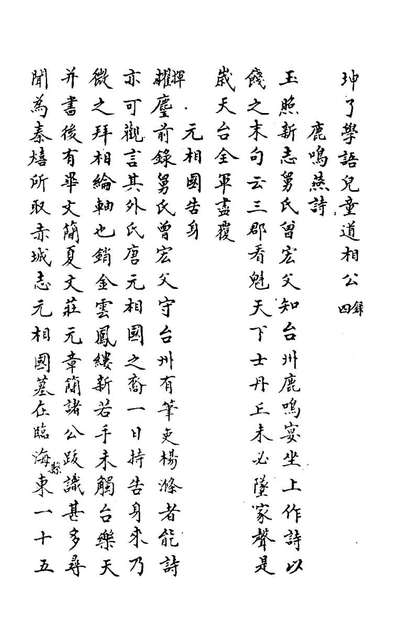 坤了學語兒童道相公四錄
鹿鳴燕詩
玉照新志舅氏曾宏父知台州鹿鳴宴坐上作詩以
餞之末句云三郡看魁天下士丹丘未必墜家聲是
歲天台全軍盡覆
元相國告身
揮麈前錄舅氏曾宏父守台州有筆吏楊滌者能詩
亦可觀言其外氏唐元相國之裔一日持告身來乃
微之拜相綸軸也銷金雲鳳縷新若手未觸台樂天
并書後有畢文簡夏文莊元章簡諸公跋識甚多尋
聞為秦熺所取赤城志元相國墓在臨海縣東一十五